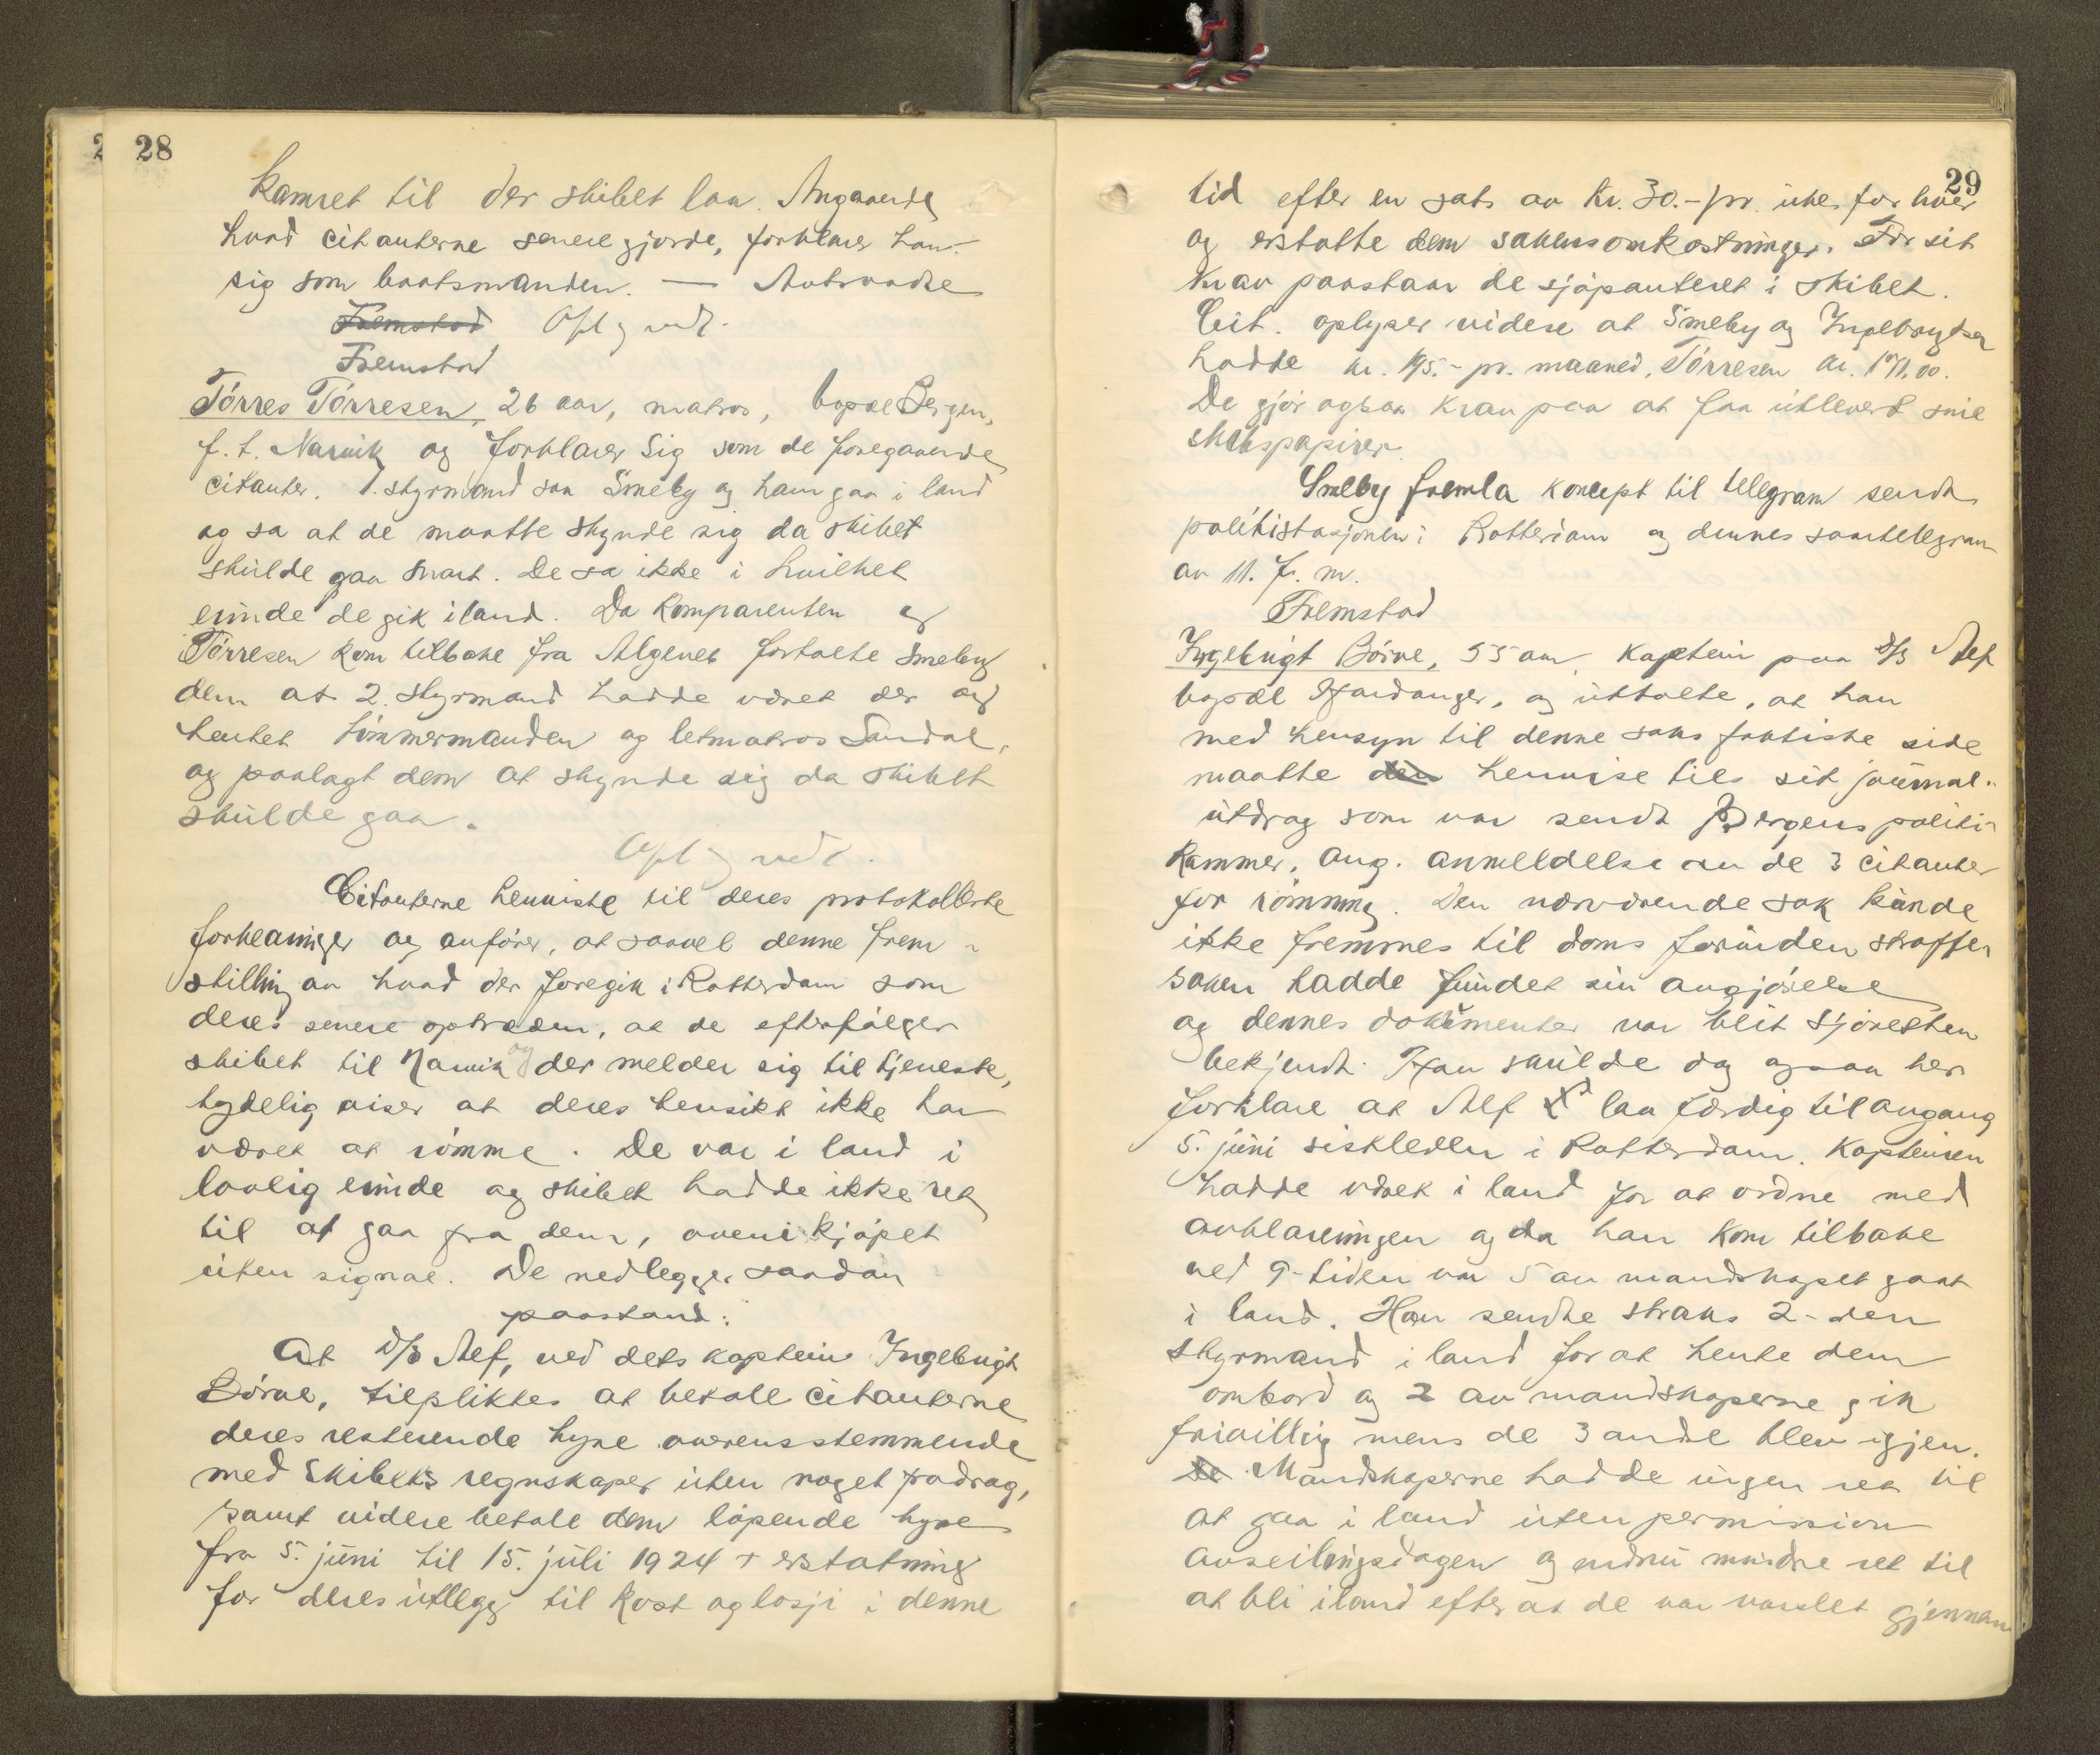 28
kamret til der skibet laa. Angaaende
hvad citanterne senere gjorde, forklarer han
sig som baatsmanden. — Avtraadte
Fremstod Opl. og vedt.
Fremstod
Tørres Tørresen, 26 aar, matros, bopæl Bergen,
f. t. Narvik og forklarer sig som de foregaaende
citanter. 1. styrmand saa Smeby og ham gaa i land
og sa at de maatte skynde sig da skibet
skulde gaa snart. De sa ikke i hvilket
erinde de gik iland. Da komparenten og
Tørresen kom tilbake fra Algeriet fortalte Smeby
dem at 2. styrmand hadde været der og
hentet tømmermanden og letmatros Sandal,
og paalagt dem at skynde sig da skibet
skulde gaa.
Opl. og vedt.
Citanterne henviste til deres protokollerte
forklaringer og anfører, at saavel denne frem-
stilling av hvad der foregik i Rotterdam som
deres senere optræden, at de efterfølger
skibet til Narvik og der melder sig til tjeneste,
tydelig viser at deres hensikt ikke har
været at rømme. De var i land i
lovlig erinde og skibet hadde ikke ret
til at gaa fra dem, oveni kjøpet
uten signal. De nedlegger saadan
paastand:
At D/S Alf, ved dets kaptein Ingebrigt
Børve, tilpliktes at betale citanterne
deres resterende hyre overensstemmende
med skibets regnskaper uten noget fradrag,
samt videre betale dem løpende hyre
fra 5. juni til 15. juli 1924 + erstatning
for deres utlegg til kost og losji i denne
29
tid efter en sats av kr. 30.- pr. uke for hver
og erstatte dem saksomkostninger. For sit
krav paastaar de sjøpanteret i skibet.
Cit. oplyser videre at Smeby og Ingebrigtsen
hadde kr. 195.- pr. maaned, Tørresen kr. 171.00.
De gjør ogsaa krav paa at faa utlevert sine
skibspapirer.
Smeby fremla koncept til telegram sendt
politistasjonen i Rotterdam og dennes svartelegram
av 11. f. m.
Fremstod
Ingebrigt Børve, 55 aar, kaptein paa D/S Alf
bopæl Hardanger, og uttalte, at han
med hensyn til denne saks faktiske side
maatte den henvise til sit journal-
utdrag som var sendt Bergens politi-
kammer, ang. anmeldelse av de 3 citanter
for rømning. Den nærværende sak kunde
ikke fremmes til doms forinden straffe-
saken hadde fundet sin avgjørelse
og dennes dokumenter var blit sjøretten
bekjendt. Han skulde dog ogsaa her
forklare at Alf laa færdig til avgang
5. juni sistleden i Rotterdam. Kapteinen
hadde været i land for at ordne med
avklareringen og da han kom tilbake
ved 9-tiden var 5 av mandskapet gaat
i land. Han sendte straks 2-den
styrmand i land for at hente dem
ombord og 2 av mandskaperne gik
frivillig mens de 3 andre blev igjen.
De Mandskaperne hadde ingen ret til
at gaa i land uten permission
avseilingsdagen og endnu mindre ret til
at bli iland efter at de var varslet gjennem